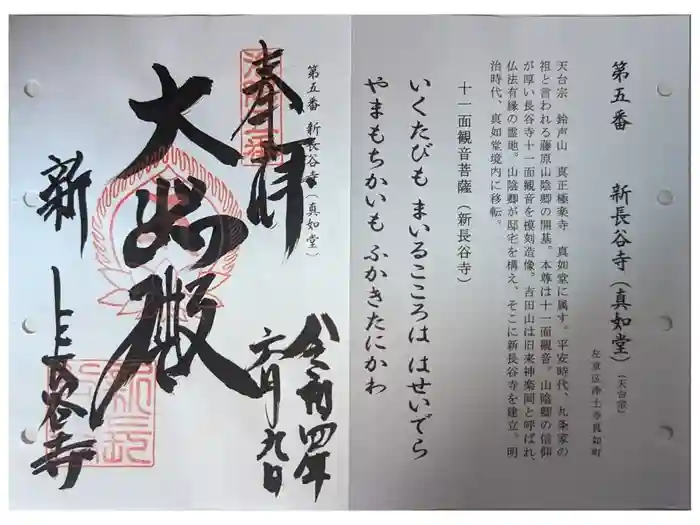 第五番 新長谷寺(真如堂)(天台宗)
左京区浄土寺真如町
天台宗 鈴声山 真正極楽寺 真如堂に属す。平安時代、九条家の
祖と言われる藤原山陰卿の開基。本尊は十一面観音。山陰卿の信仰
が厚い長谷寺十一面観音を模刻造像。吉田山は旧来神楽岡と呼ばれ、
仏法有縁の霊地。山陰卿が邸宅を構え、そこに新長谷寺を建立。明
治時代、真如堂境内に移転。
十一面観音菩薩(新長谷寺)
いくたびも まいるこころは はせいでら
やまもちかいも ふかきたにかわ
第五番 新長谷寺(真如堂)
奉拝
令和四年
六月九日
大悲殿
新長谷寺